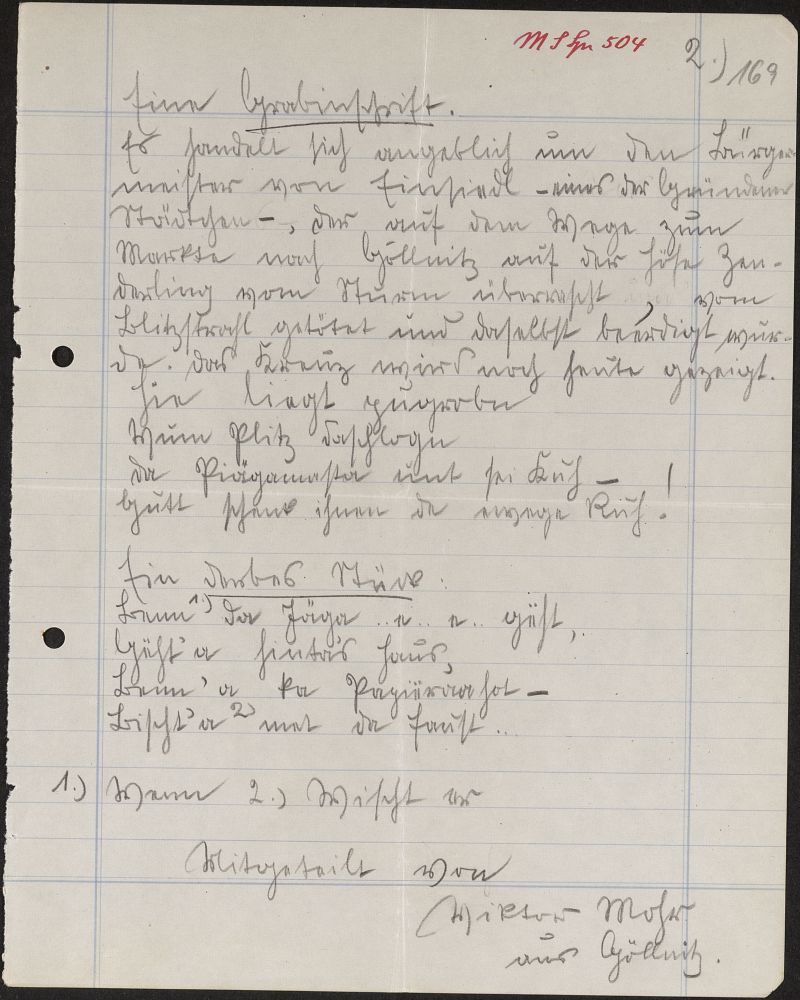 M S Spr 504
2.) 169
Eine Grabinschrift.
Es handelt sich angeblich um den Bürger-
meister von Einsiedl - eines der Gründener
Städtchen -, der auf dem Wege zum
Markte nach Göllnitz auf der Höhe Zen-
derling vom Sturm überrascht, vom
Blitzstrahl getötet und daselbst beerdigt wur-
de. Das Kreuz wird noch heute gezeigt.
Hie liegt pugrobn
Wum Plitz daschlogn
Da Piägamasta unt sei Kuh -
Gutt schenk ihnen de ewege Ruh!
Ein derbes Stück.
Benn 1) da Jäga ..e.. e.. geht,
Geht'a hinta's Haus,
Benn'a ka Papiër hot -
Bischt'a 2) met da Faust ..
1.) Wenn 2.) Wischt er
Mitgeteilt von
Wiktor Mohr
aus Göllnitz.